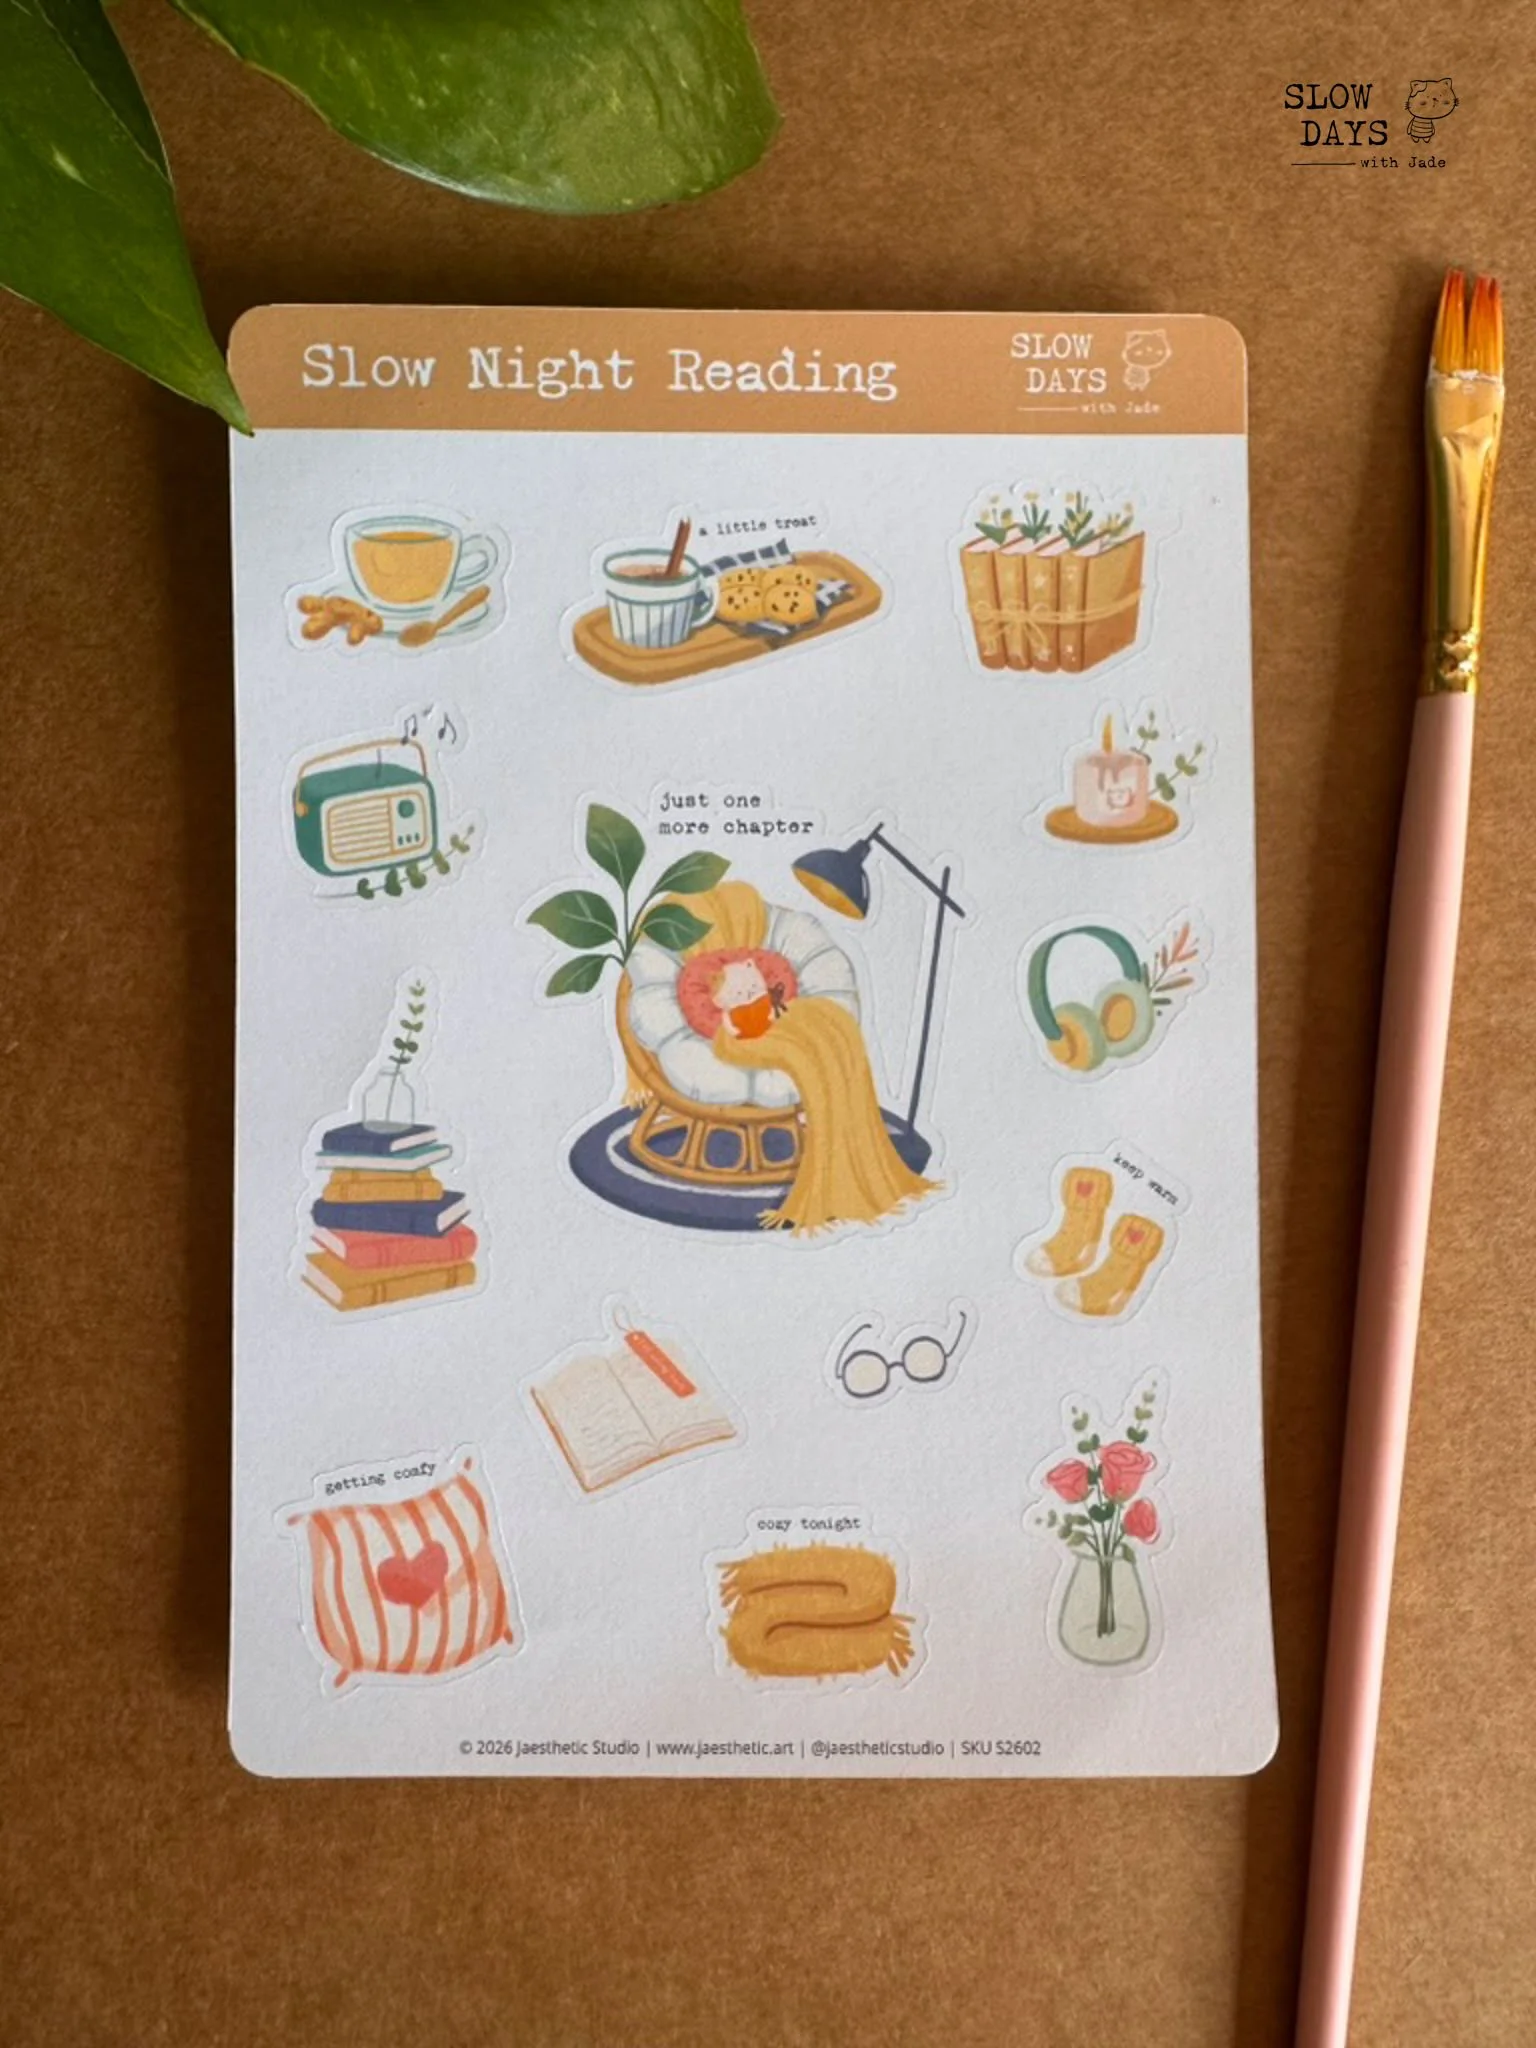 SLOW
DAYS
with Jade
Slow Night Reading
SLOW
DAYS
with Jade
a little treat
just one
more chapter
keep warm
getting comfy
cozy tonight
© 2026 Jaesthetic Studio | www.jaesthetic.art | @jaestheticstudio | SKU S2602